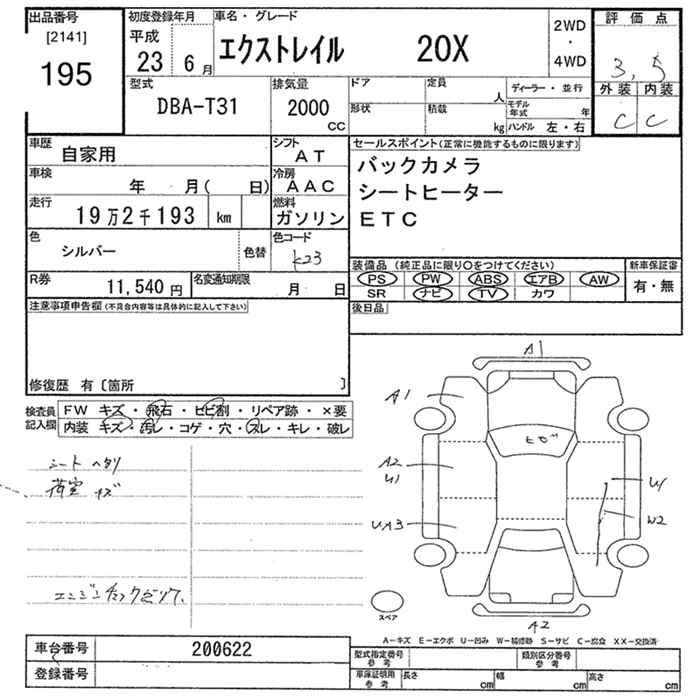 出品番号
[2141]
195
初度登録年月
平成
23 6月
車名・グレード
エクストレイル 20X
2WD
・
4WD
評価点
3,5
外装 内装
C C
型式
DBA-T31
排気量
2000
CC
ドア
定員
人
ディーラー・並行
形状
積載
kg
モデル年式
年
ハンドル 左・右
車歴
自家用
シフト
AT
車検
年 月( 日)
冷房
AAC
走行
19万2千193 km
燃料
ガソリン
色
シルバー
色替
色コード
K23
R券
11,540円
名変通知期限
月 日
セールスポイント(正常に機能するものに限ります)
バックカメラ
シートヒーター
ETC
装備品 (純正品に限り○をつけてください)
PS PW ABS エアB AW
SR ナビ TV カワ
新車保証書
有・無
後日品
注意事項申告欄(不具合内容等は具体的に記入して下さい)
修復歴 有〔箇所 〕
検査員記入欄
FW キズ・飛石・ヒビ割・リペア跡・×要
内装 キズ・汚レ・コゲ・穴・スレ・キレ・破レ
シート ヘタリ
荷室 キズ
エンジンチェックランプ
A1
A1
ヒビ
A2
U1
U1
UA3
W2
スペア
A2
A-キズ E-エクボ U-凹み W-補修跡 S-サビ C-腐食 XX-交換済
車台番号
200622
登録番号
型式指定番号
参考
類別区分番号
参考
車庫証明用
参考
長さ
cm
幅
cm
高さ
cm